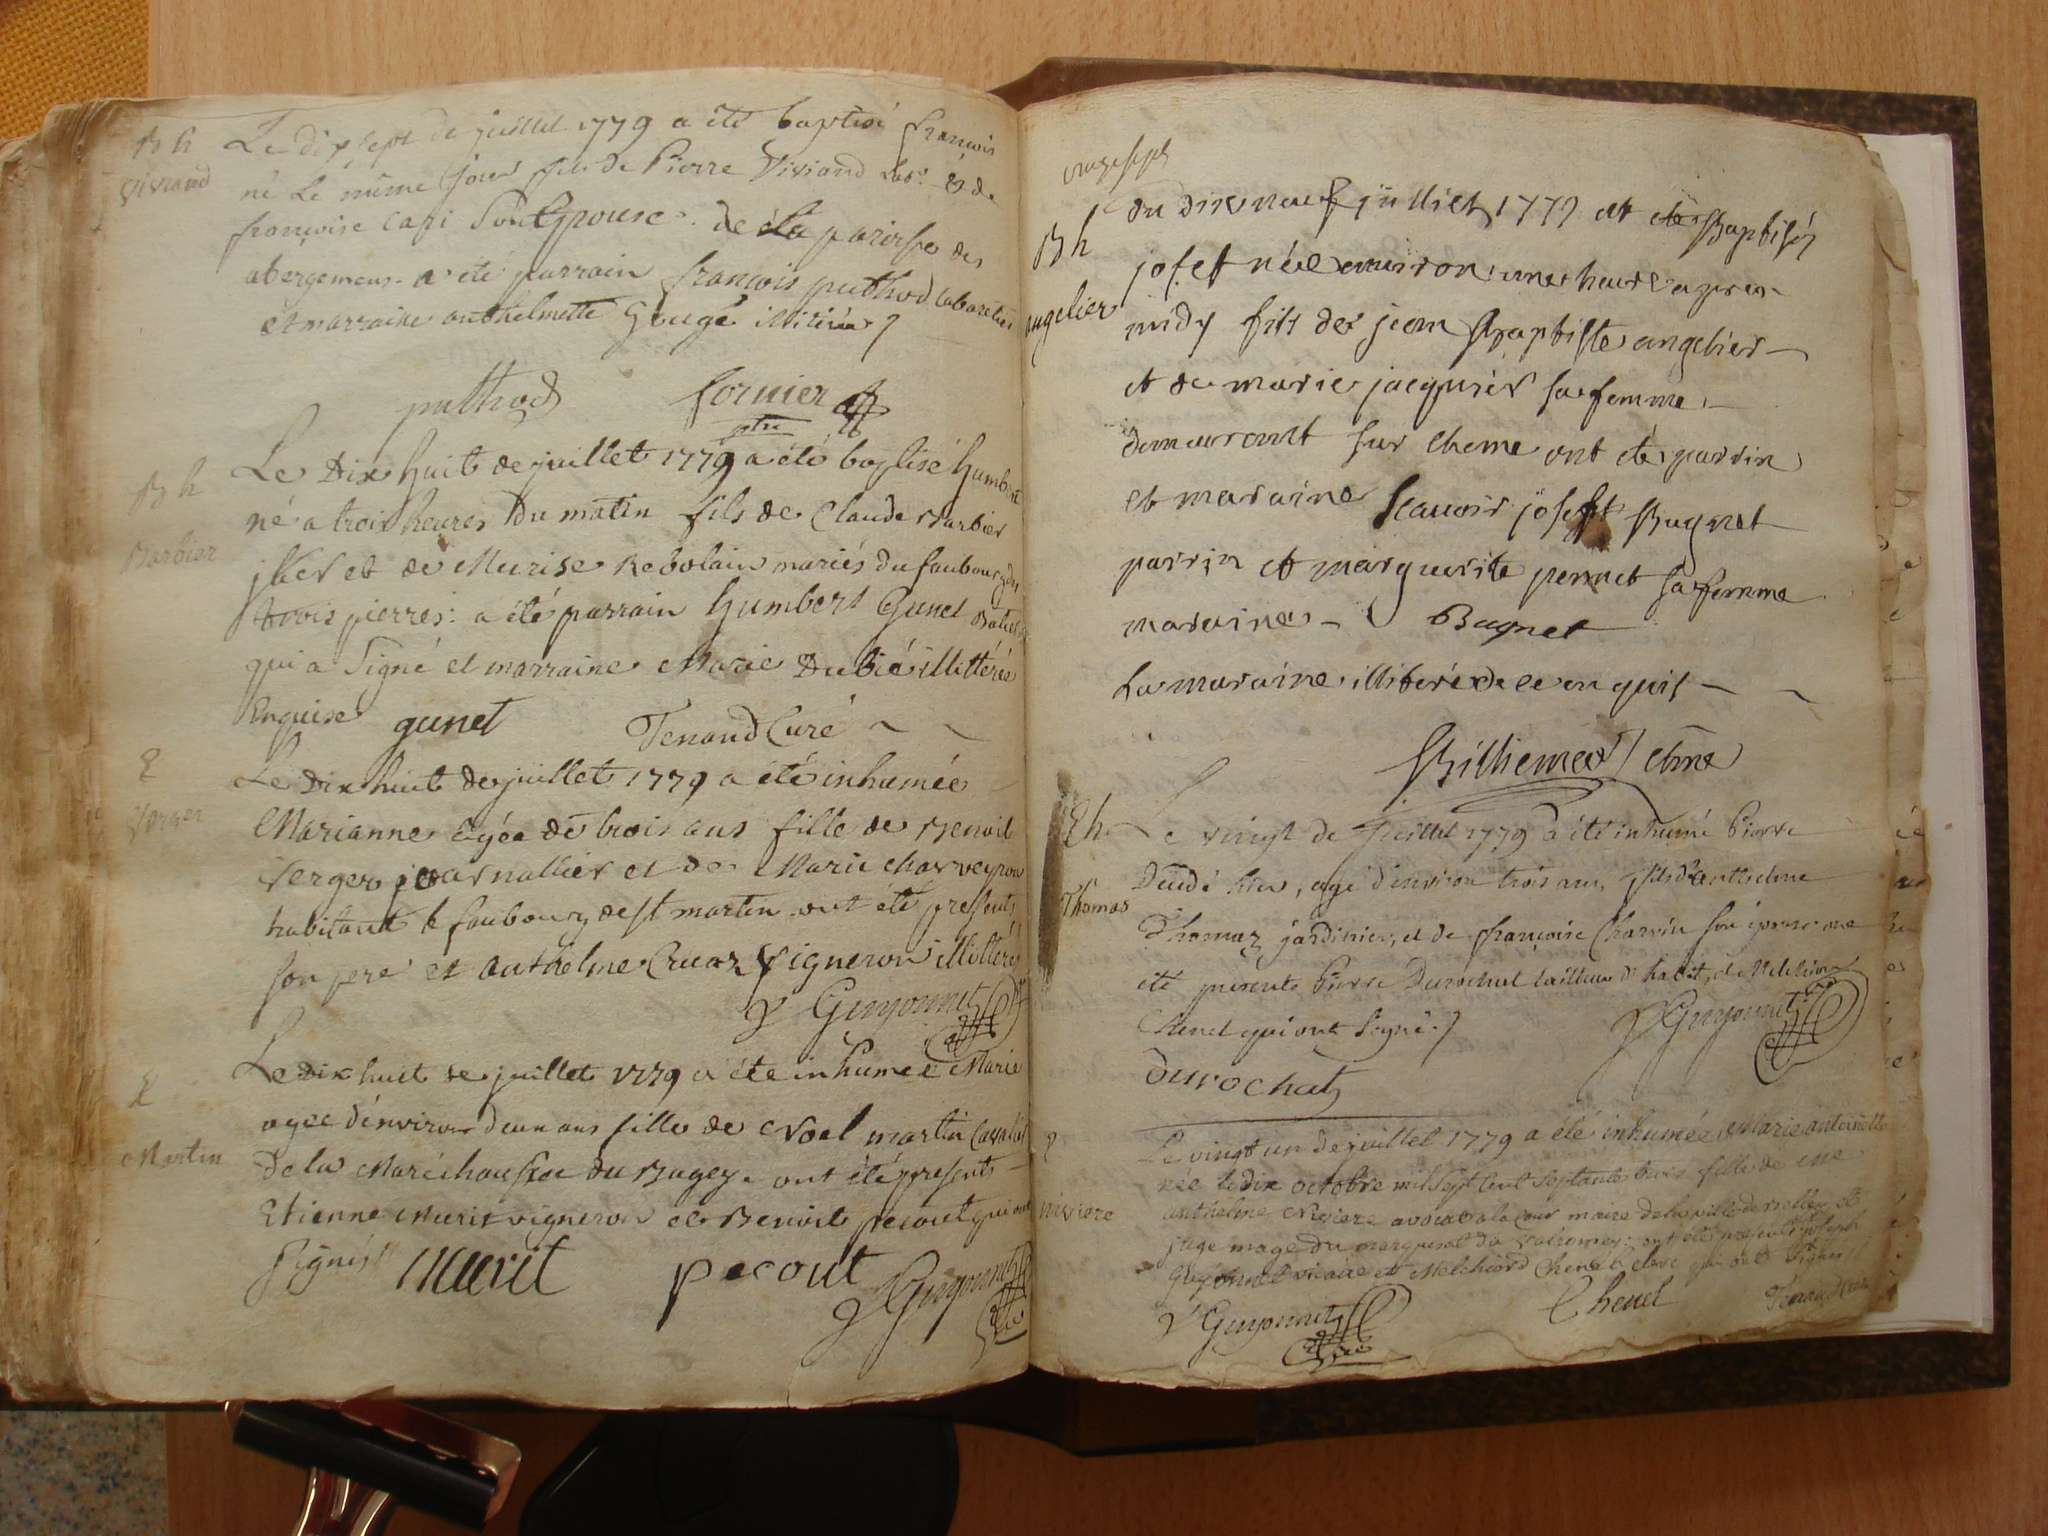 B h
Viviand
Le dix sept de juillet 1779 a été baptisé françois
né Le même jour fils de Pierre Viviand Lab.r & de
françoise Capi Son Epouse. de la paroisse des
abergemens. a été parrain françois puthod cabaretier
et marraine anthelmette Gougé illitérée
puthod fornier
ptre
B h
Barbier
Le Dix huit de juillet 1779 a été baptisé humbert
né a trois heures Du matin fils de Claude Barbier
et de Rebolain mariés du faubourg des
trois pierres: a été parrain humbert Gunet
qui a Signé et marraine Marie Dubié illittérée
Enquise gunet Tenand Curé
E
Verger
Le Dix huit de juillet 1779 a été inhumée
Marianne agée de trois ans fille de Benoit
Verger journallier et de Marie charveyron
habitant le faubourg de st martin ont été presents
son pere et anthelme Cruaz Vigneron illittérés
Guyonnet
E
Martin
Le Dix huit de juillet 1779 a éte inhumée Marie
agée d'environ deux ans fille de Noel martin Cavalier
De la Maréchaussée du Bugey. ont été presents
Etienne Murit vigneron et Benoit pecout qui ont
Signés Murit pecout Guyonnet
B h
angelier
du dixneuf juilliet 1779 et été Baptisés
josept née environ une heure apres
midy fils de jean Baptiste angelier
et de marie jacquier sa femme
demeurant sur theme ont été parrin
et maraine Scauoir josept Bugnet
parrin et marguerite pernet sa femme
maraine Bugnet
La maraine illiterée de ce enquis
Billiemaz
E h.
Thomas
Le vingt de Juillet 1779 a été inhumé Pierre
agé d'environ trois ans, fils d'anthelme
Thomas jardinier, et de françoise Charvin son épouse ont
été présents Pierre Durochat tailleur d'habit, et Melchior
Chenet qui ont Signé. Guyonnet
Durochat
E
nivière
Le vingt un de juillet 1779 a été inhumée Marie antoinette
née le dix octobre mil Sept Cent Septante trois fille de me
anthelme Niviere avocat a la Cour maire de la ville de Belley et
juge mage du marquisat de valromey: ont été présents joseph
Guyonnet vicaire et Melchiord Chenet clerc qui ont Signés
Guyonnet Chenet Tenand Curé